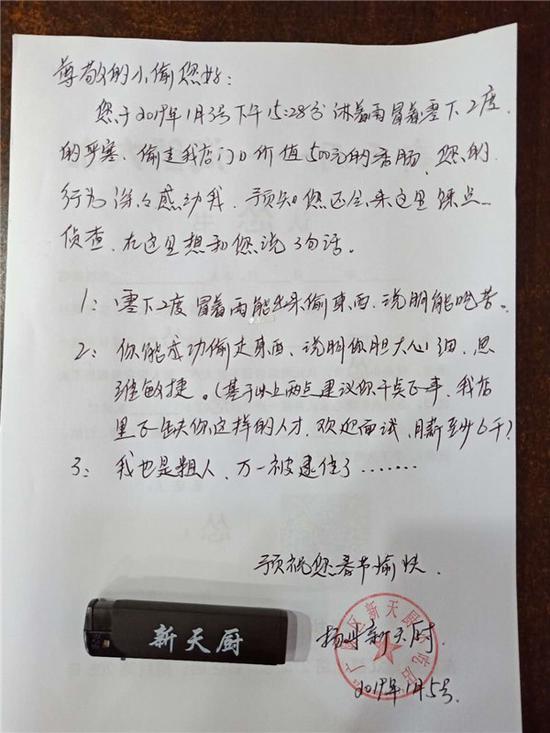 尊敬的小偷您好：
您于2019年1月3号下午15:28分淋着雨冒着零下2度
的严寒、偷走我店门口价值500元的香肠、您的
行为深々感动我、预知您还会来这里踩点
侦查、在这里想和您说3句话。
1：零下2度冒着雨能出来偷東西、说明能吃苦。
2：你能成功偷走東西、说明你胆大心细、思
维敏捷。（基于以上两点建议你干点正事、我店
里正缺你这样的人才、欢迎面试、月薪至少6千？
3：我也是粗人、万一被逮住了……
预祝您春节愉快．
新天厨
扬州新天厨
区新天厨
2019年1月5号